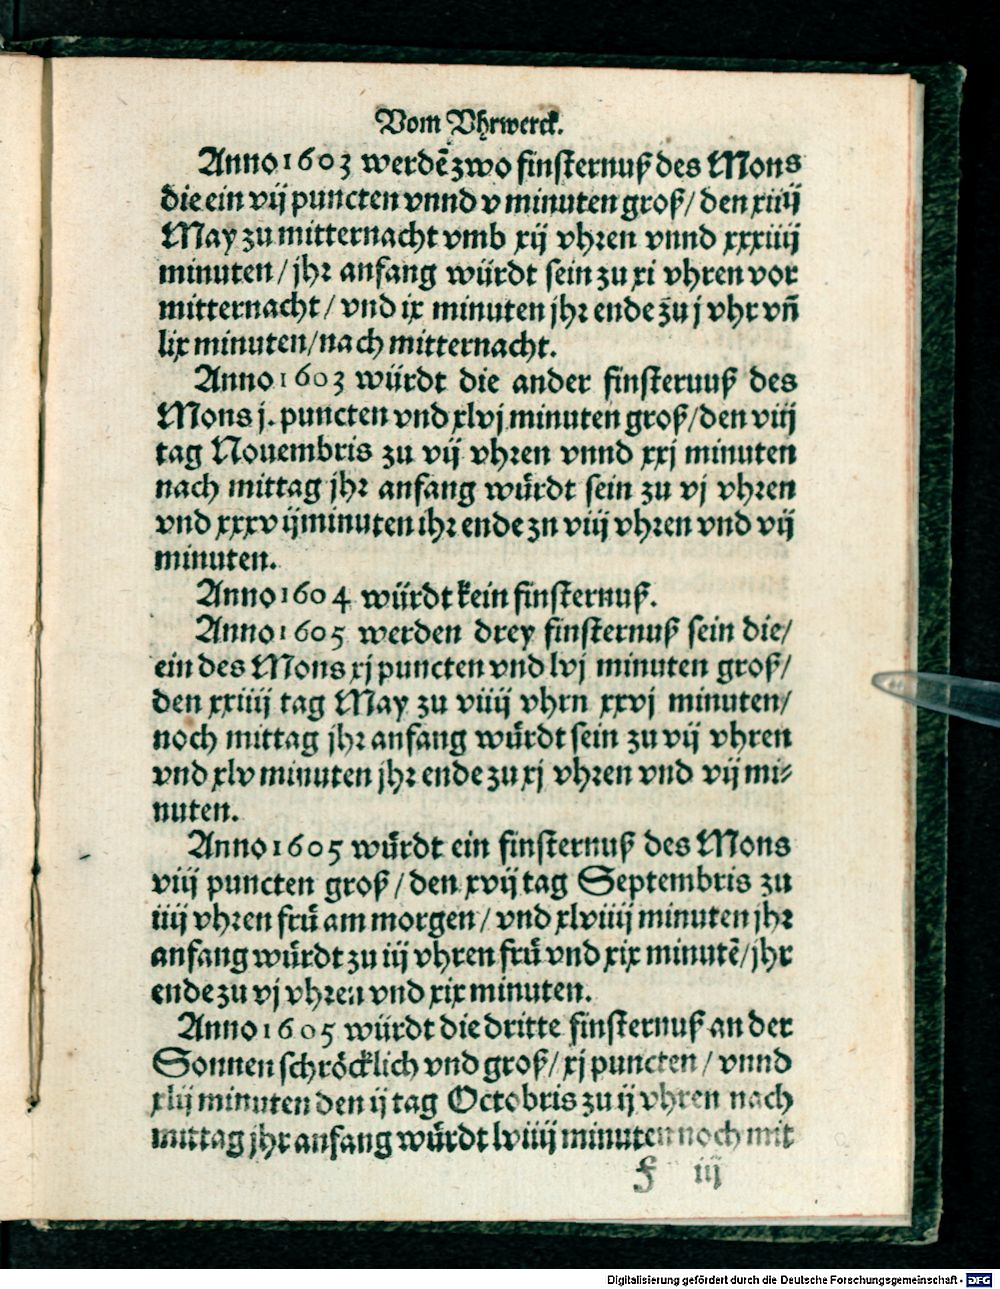 Vom Vhrwerck.
Anno 1603 werdē zwo finsternuß des Mons
die ein vij puncten vnnd v minuten groß/ den xiiij
May zu mitternacht vmb xij vhren vnnd xxxiiij
minuten/ jhr anfang würdt sein zu xi vhren vor
mitternacht/ vnd ix minuten jhr ende zu j vhr vñ
lix minuten/ nach mitternacht.
Anno 1603 würdt die ander finsteruuß des
Mons j. puncten vnd xlvj minuten groß/ den viij
tag Nouembris zu vij vhren vnnd xxj minuten
nach mittag jhr anfang würdt sein zu vj vhren
vnd xxxvij minuten ihr ende zn viij vhren vnd vij
minuten.
Anno 1604 würdt kein finsternuß.
Anno 1605 werden drey finsternuß sein die/
ein des Mons xj puncten vnd lvj minuten groß/
den xxiiij tag May zu viiij vhrn xxvj minuten/
noch mittag jhr anfang würdt sein zu vij vhren
vnd xlv minuten jhr ende zu xj vhren vnd vij mi⸗
nuten.
Anno 1605 würdt ein finsternuß des Mons
viij puncten groß/ den xvij tag Septembris zu
iiij vhren frü am morgen/ vnd xlviiij minuten jhr
anfang würdt zu iij vhren frü vnd xix minutē/ jhr
ende zu vj vhren vnd xix minuten.
Anno 1605 würdt die dritte finsternuß an der
Sonnen schröcklich vnd groß/ xj puncten/ vnnd
xlij minuten den ij tag Octobris zu ij vhren nach
mittag jhr anfang würdt lviiij minuten noch mit
f iij
Digitalisierung gefördert durch die Deutsche Forschungsgemeinschaft - DFG